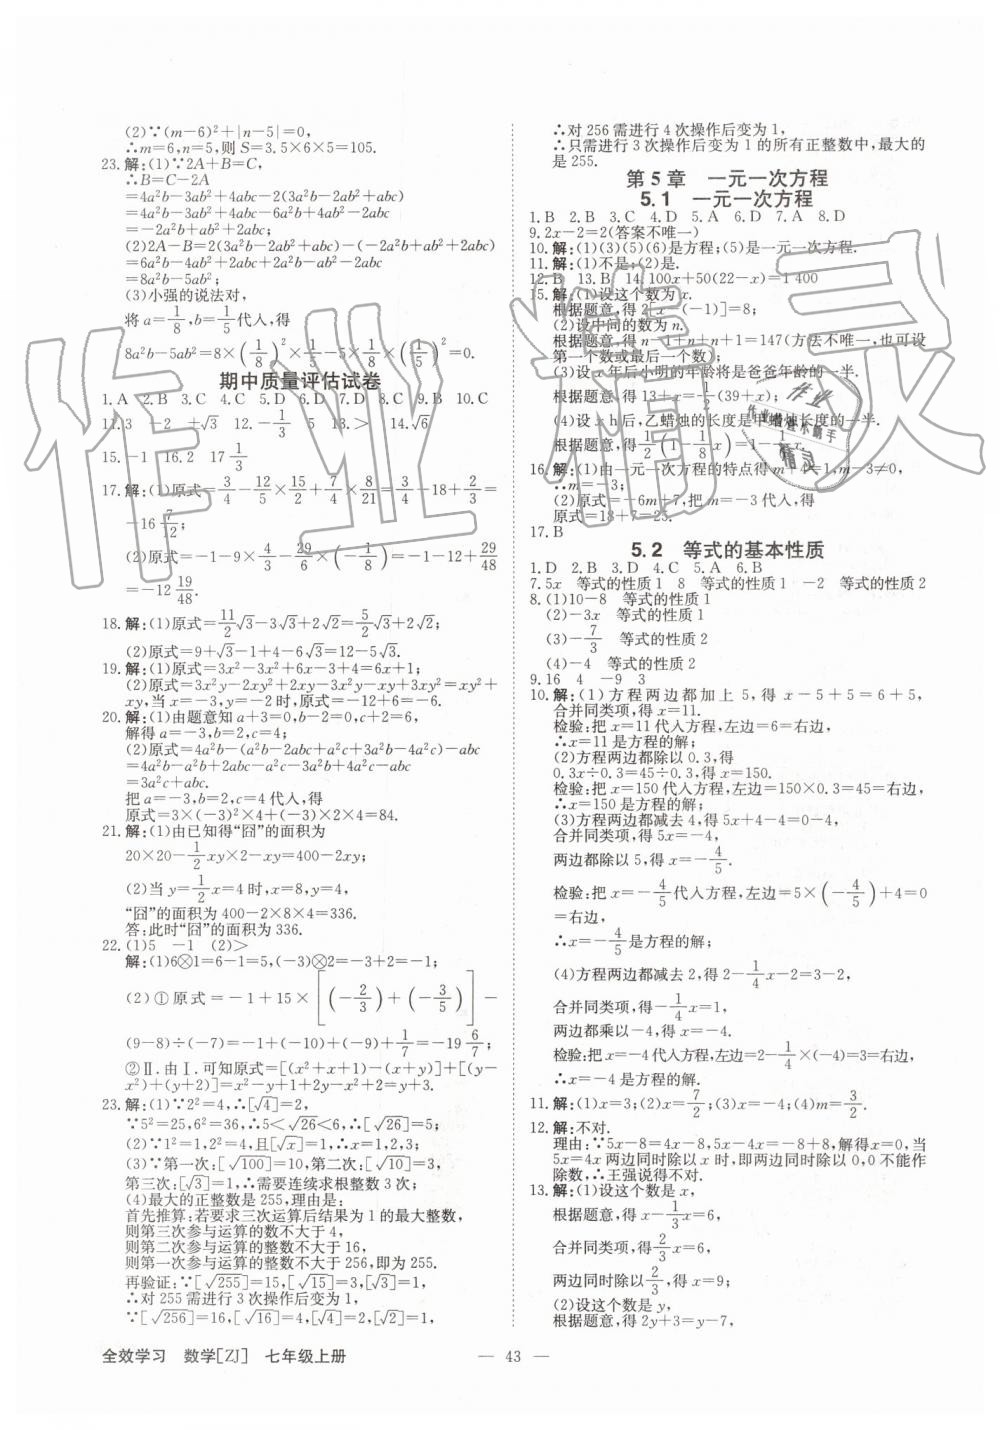 (2)∵(m-6)²+|n-5|=0,
∴m=6,n=5,则 S=3.5×6×5=105.
23.解:(1)∵2A+B=C,
∴B=C-2A
=4a²b-3ab²+4abc-2(3a²b-2ab²+abc)
=4a²b-3ab²+4abc-6a²b+4ab²-2abc
=-2a²b+ab²+2abc;
(2)2A-B=2(3a²b-2ab²+abc)-(-2a²b+ab²+2abc)
=6a²b-4ab²+2abc+2a²b-ab²-2abc
=8a²b-5ab²;
(3)小强的说法对,
将 a=1/8,b=1/5代入,得
8a²b-5ab²=8×(1/8)²×1/5-5×1/8×(1/5)²=0.
期中质量评估试卷
1.A 2.B 3.C 4.C 5.D 6.D 7.D 8.C 9.B 10.C
11.3 -2 ±√3 12.-1/3 5 13.> 14.√6
15.-1 16.2 17 1/3
17.解:(1)原式=3/4-12/5×15/2+7/4×8/21=3/4-18+2/3=
-16 7/12;
(2)原式=-1-9×4/3-29/6×(-1/8)=-1-12+29/48
=-12 19/48.
18.解:(1)原式=11/2√3-3√3+2√3=5/2√3+2√3;
(2)原式=9+√3-1+4-6√3=12-5√3.
19.解:(1)原式=3x²-3x²+6x-3+4=6x+1;
(2)原式=3x²y-2xy²+2xy-3x²y-xy+3xy²=xy²+
xy,当 x=-3,y=-2时,原式=-12+6=-6.
20.解:(1)由题意知 a+3=0,b-2=0,c+2=6,
解得 a=-3,b=2,c=4;
(2)原式=4a²b-(a²b-2abc+a²c+3a²b-4a²c)-abc
=4a²b-a²b+2abc-a²c-3a²b+4a²c-abc
=3a²c+abc.
把 a=-3,b=2,c=4 代入,得
原式=3×(-3)²×4+(-3)×2×4=84.
21.解:(1)由已知得“囧”的面积为
20×20-1/2xy×2-xy=400-2xy;
(2)当 y=1/2x=4 时,x=8,y=4,
“囧”的面积为 400-2×8×4=336.
答:此时“囧”的面积为 336.
22.(1)5 -1 (2)>
解:(1)6⊗1=6-1=5,(-3)⊗2=-3+2=-1;
(2)①原式=-1+15×[(-2/3)+(-3/5)]-
(9-8)÷(-7)=-1+(-10)+(-9)+1/7=-19 6/7;
②Ⅱ.由Ⅰ.可知原式=[(x²+x+1)-(x+y)]+[(y-
x²)+(y+2)]=x²-y+1+2y-x²+2=y+3.
23.解:(1)∵2²=4,∴[√4]=2,
∵5²=25,6²=36,∴5<√26<6,∴[√26]=5;
(2)∵1²=1,2²=4,且[√x]=1,∴x=1,2,3;
(3)∵第一次:[√100]=10,第二次:[√10]=3,
第三次:[√3]=1,∴需要连续求根整数 3 次;
(4)最大的正整数是 255,理由是:
首先推算:若要求三次运算后结果为 1 的最大整数,
则第三次参与运算的数不大于 4,
则第二次参与运算的整数不大于 16,
则第一次参与运算的整数不大于 256,即为 255.
再验证:∵[√255]=15,[√15]=3,[√3]=1,
∴对 255 需进行 3 次操作后变为 1,
∵[√256]=16,[√16]=4,[√4]=2,[√2]=1,
∴对 256 需进行 4 次操作后变为 1,
∴只需进行 3 次操作后变为 1 的所有正整数中,最大的
是 255.
第 5 章 一元一次方程
5.1 一元一次方程
1.B 2.B 3.C 4.D 5.A 6.D 7.A 8.D
9.2x-2=2(答案不唯一)
10.解:(1)(3)(5)(6)是方程;(5)是一元一次方程.
11.解:(1)不是;(2)是.
12.B 13.B 14.100x+50(22-x)=1 400
15.解:(1)设这个数为 x.
根据题意,得 2[x-(-1)]=8;
(2)设中间的数为 n.
根据题意,得 n-1+n+n+1=147(方法不唯一,也可设
第一个数或最后一个数);
(3)设 x 年后小明的年龄将是爸爸年龄的一半.
根据题意,得 13+x=1/2(39+x);
(4)设 x h后,乙蜡烛的长度是甲蜡烛长度的一半.
根据题意,得1/2(1-1/8x)=1-1/6x.
16.解:(1)由一元一次方程的特点得|m|+4=1,m-3≠0,
∴m=-3;
(2)原式=-6m+7,把 m=-3 代入,得
原式=18+7=25.
17.B
5.2 等式的基本性质
1.D 2.B 3.D 4.C 5.A 6.B
7.5x 等式的性质 1 8 等式的性质 1 -2 等式的性质 2
8.(1)10-8 等式的性质 1
(2)-3x 等式的性质 1
(3)-7/3 等式的性质 2
(4)-4 等式的性质 2
9.16 4 -9 3
10.解:(1)方程两边都加上 5,得 x-5+5=6+5,
合并同类项,得 x=11.
检验:把 x=11 代入方程,左边=6=右边,
∴x=11 是方程的解;
(2)方程两边都除以 0.3,得
0.3x÷0.3=45÷0.3,得 x=150.
检验:把 x=150 代入方程,左边=150×0.3=45=右边,
∴x=150 是方程的解;
(3)方程两边都减去 4,得 5x+4-4=0-4,
合并同类项,得 5x=-4,
两边都除以 5,得 x=-4/5.
检验:把 x=-4/5代入方程,左边=5×(-4/5)+4=0
=右边,
∴x=-4/5是方程的解;
(4)方程两边都减去 2,得 2-1/4x-2=3-2,
合并同类项,得-1/4x=1,
两边都乘以-4,得 x=-4.
检验:把 x=-4 代入方程,左边=2-1/4×(-4)=3=右边,
∴x=-4 是方程的解.
11.解:(1)x=3;(2)x=7/2;(3)x=-3;(4)m=3/2.
12.解:不对.
理由:∵5x-8=4x-8,5x-4x=-8+8,解得x=0,当
5x=4x 两边同时除以 x 时,即两边同时除以 0,0 不能作
除数,∴王强说得不对.
13.解:(1)设这个数是 x,
根据题意,得 x-1/3x=6,
合并同类项,得2/3x=6,
两边同时除以2/3,得 x=9;
(2)设这个数是 y,
根据题意,得 2y=y-7,
全效学习 数学[ZJ] 七年级上册
— 43 —
作业精灵
作业
作业精灵小帮手
精灵